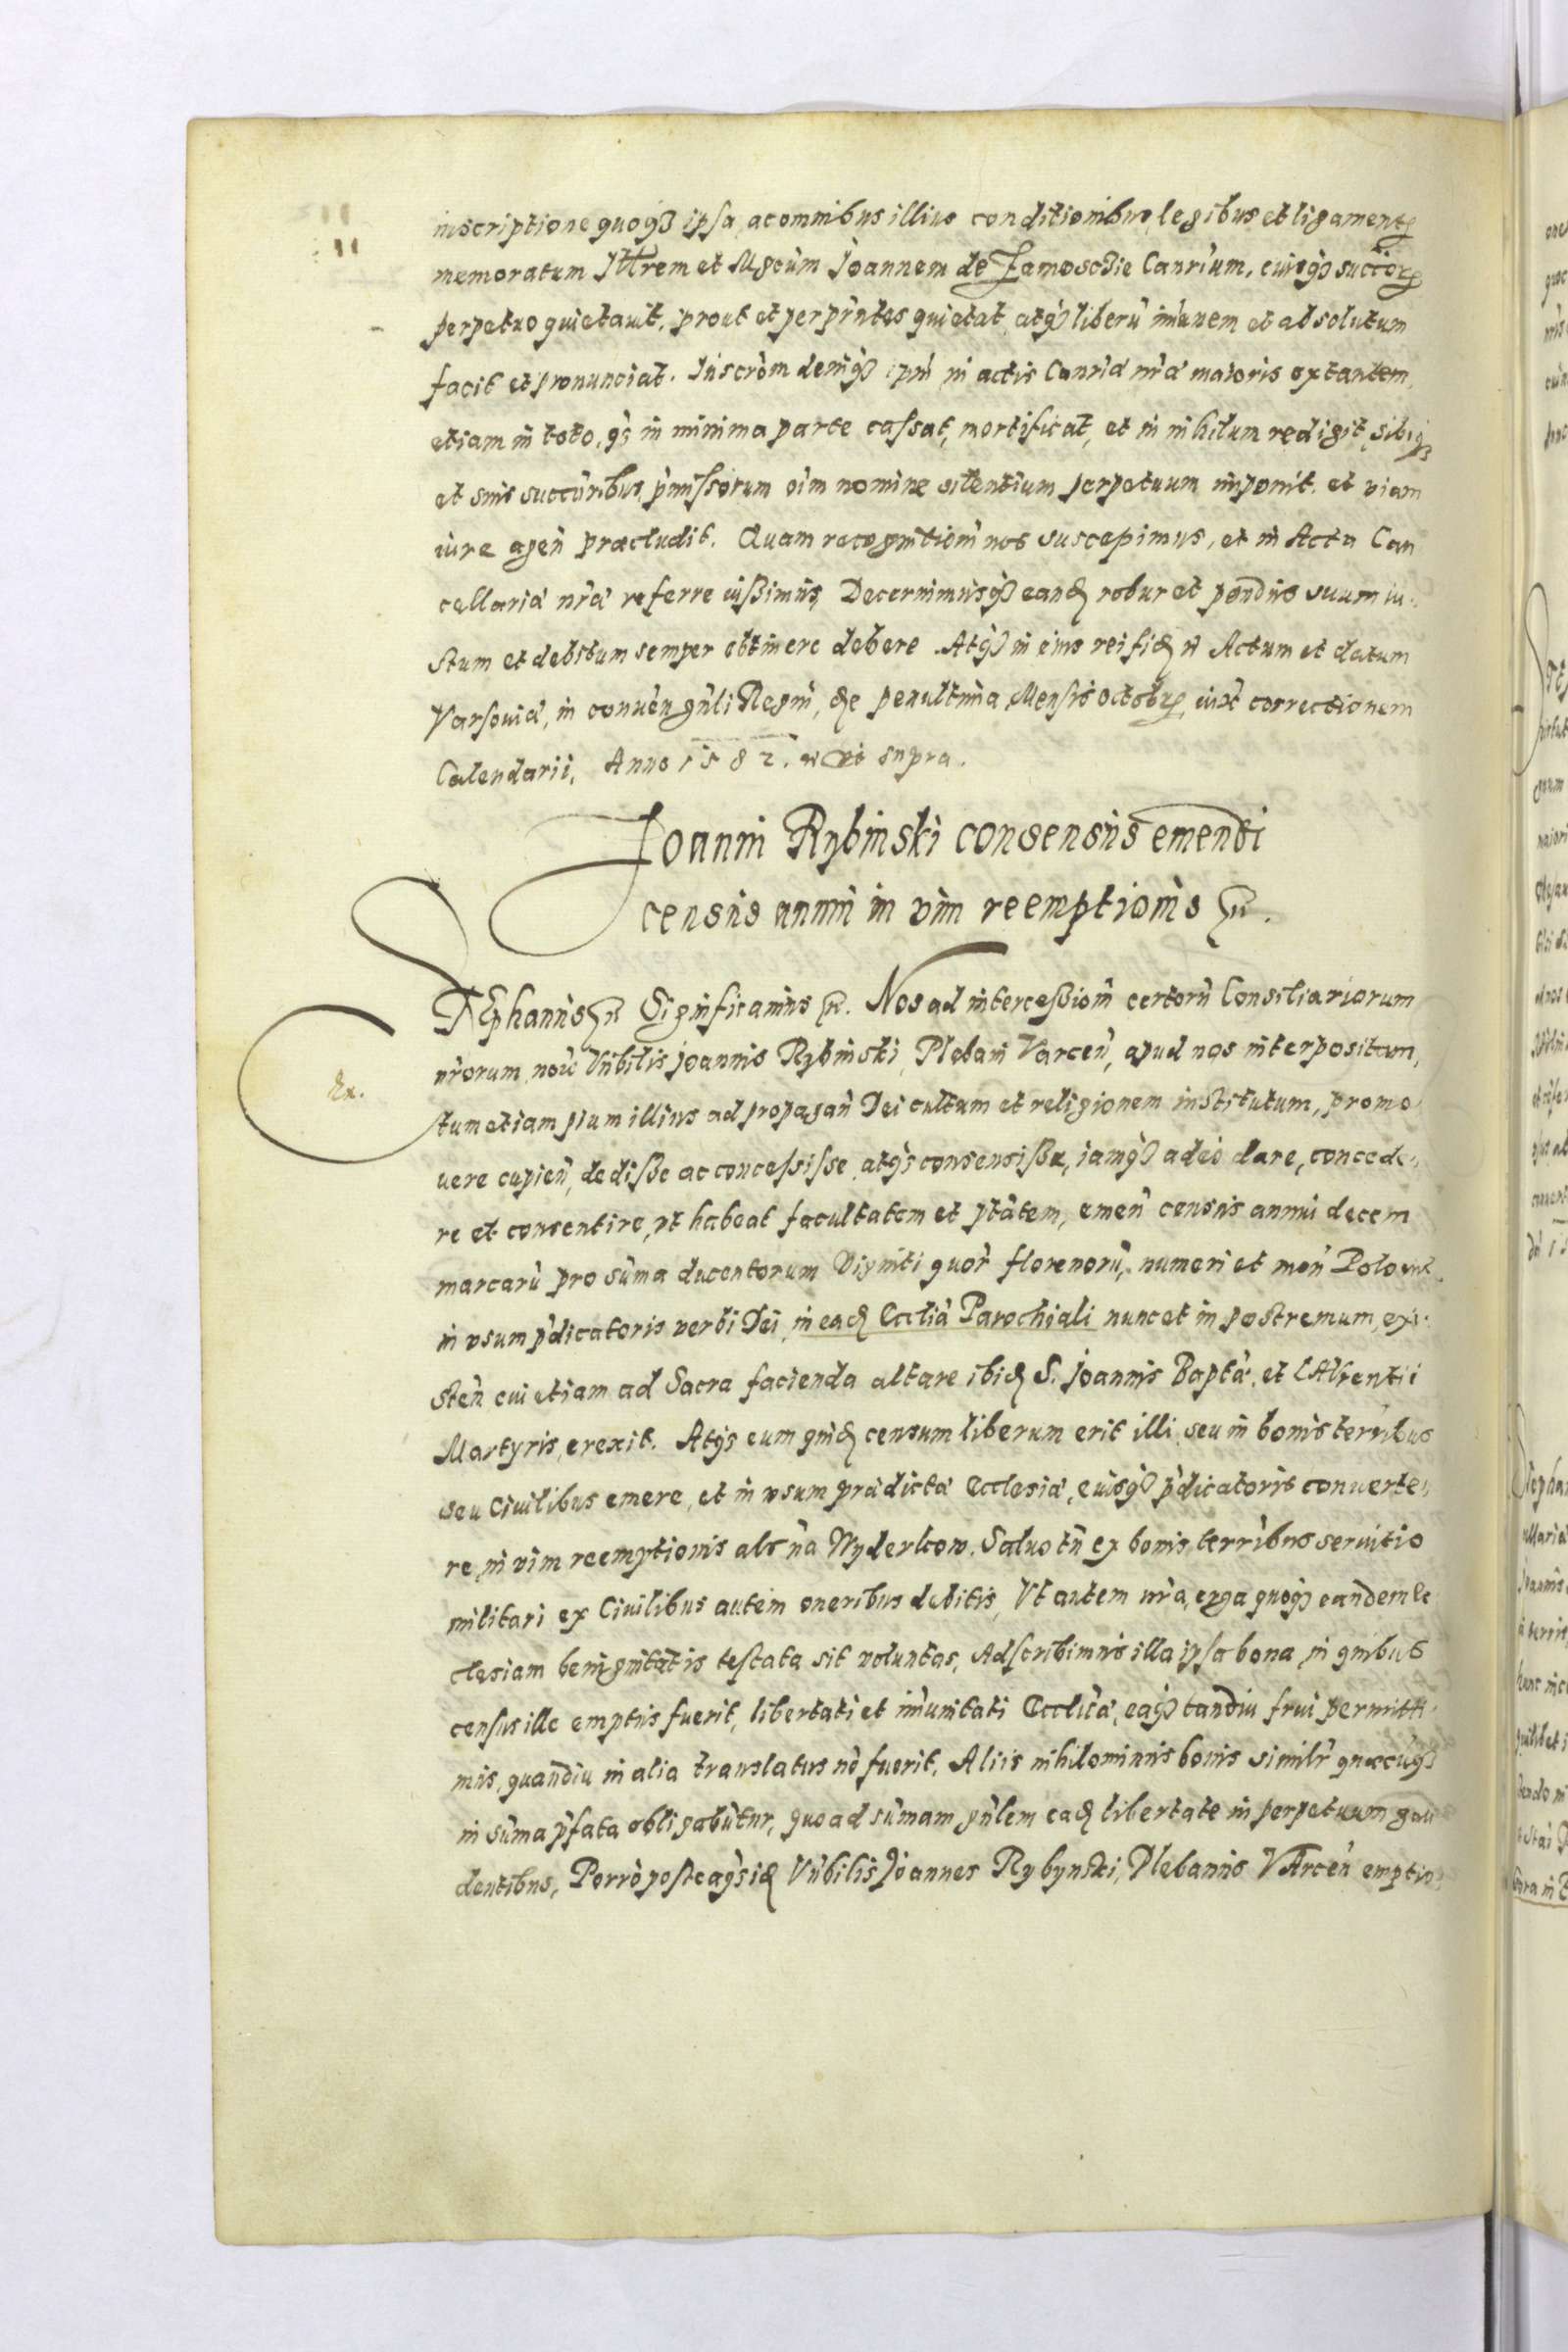 inscriptione quoqȝ ipsa, ac omnibus illius conditionibus, legibus et ligamentꝭ
memoratum Illrem et Mgcum Joannem de Zamoscie Canrium, eiusqȝ succorꝭ
perpetuo quietauit, prout et per pñtes quietat, atqȝ liberũ imunem et absolutum
facit et pronunciat. Inscrom deniqȝ ipm in actis Canriæ nræ maioris extantem,
etiam in toto, qȝ in minima parte cassat, mortificat, et in nihilum redigit, sibiqȝ
et suis succoribus pmissorum oim nomine silentium perpetuum imponit, et viam
iure agen præcludit. Quam recognitiom nos suscepimus, et in Acta Can
cellariæ nræ referre iussimus, Decernimusqȝ eand robur et pondus suum iu
stum et debitum semper obtinere debere. Atqȝ in eius rei fid Actum et datum
Varsouiæ, in conuen gnli Regni, die penultima Mensis octobrꝭ iuxt correctionem
Calendarii, Anno 1582. ut supra.
Joanni Rybinski consensus emendi
census annui in vim reemptionis
Stephanus Significamus Nos ad intercessiom certorũ Consiliariorum
nrorum, noie Vnbilis Joannis Rybinski, Plebani Varcen, apud nos interpositam,
tum etiam pium illius ad propagan Dei cultum et religionem institutum, promo
uere cupien, dedisse ac concessisse, atqȝ consensisse, iamqȝ adeo dare, concede
re et consentire, vt habeat facultatem et ptatem, emen census annui decem
marcarũ pro suma ducentorum Viginti quor florenorũ, numeri et mon Polonic.
in vsum pdicatoris verbi Dei, in ead Ecclia Parochiali nunc et in postremum, exi
sten cui etiam ad Sacra facienda altare ibid S. Joannis Baptæ, et Laurentii
Martyris, erexit. Atqȝ eum quid censum liberum erit illi, seu in bonis terribus
seu Ciuilibus emere, et in vsum prædictæ Ecclesiæ, eiusqȝ pdicatoris conuerte
re, in vim reemptionis als na Wyderkow. Saluo tn ex bonis terribus seruitio
militari ex Ciuilibus autem oneribus debitis, Vt autem nra, erga quoqȝ eandem Ec
clesiam benignitatis testata sit voluntas, Adscribimus illa ipsa bona, in quibus
census ille emptus fuerit, libertati et imunitati Eccliæ, eaqȝ tandiu frui permitti
mus, quandiu in alia translatus no fuerit, Aliis nihilominus bonis similr quæcuqȝ
in suma pfata obligabutur, quoad sumam pnlem ead libertate in perpetuum gau
dentibus, Porro posteaqȝ id Vnbilis Joannes Rybynski, Plebanus Varcen emptio